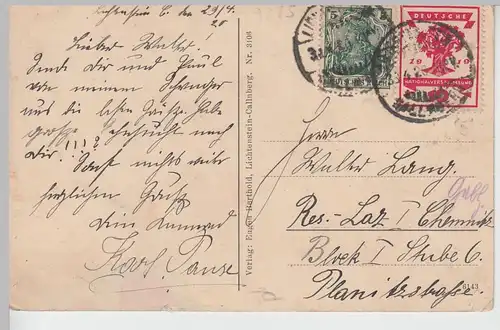 Lichtenstein C. den 29/4.
20
Lieber Walter.
Sende Dir und Paul
von meinem
uns die besten Grüße. Habe
große Sehnsucht nach
Dir. !!! ? Sonst nichts mehr
herzlichen Gruß
Dein Kumerad
Karl Pause
Verlag: Eugen Berthold, Lichtenstein-Callnberg. Nr. 3106
5 5
DEUTSCHE
1919
NATIONALVERSAMMLUNG
Herrn
Walter Lang.
Res.-Laz I Chemnitz
Block I Stube 6.
Planitzstrasse.
6143